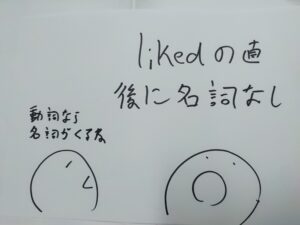 likedの直
後に名詞なし
動詞なら
名詞がくるな